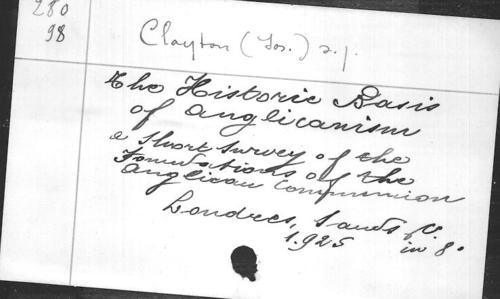 280
98
Clayton (Jos.) s.j.
The Historic Basis
of Anglicanism
a short survey of the
Foundations of the
Anglican Communion
Londres, Sands & C°
1925 in 8°